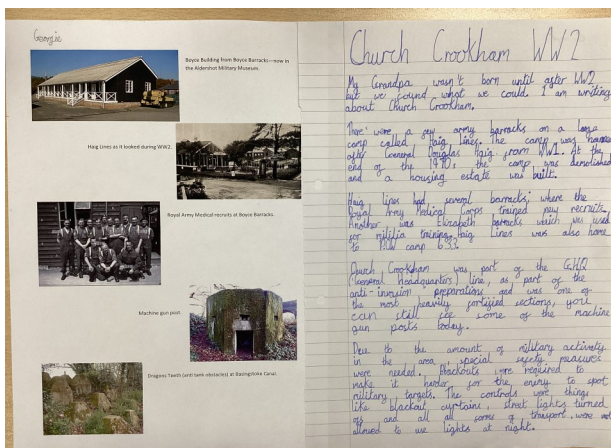 Georgie
Boyce Building from Boyce Barracks—now in
the Aldershot Military Museum.
Haig Lines as it looked during WW2.
Royal Army Medical recruits at Boyce Barracks.
Machine gun post
Dragons Teeth (anti tank obstacles) at Basingstoke Canal.
Church Crookham WW2
My Grandpa wasn't born until after WW2
but we found what we could. I am writing
about Church Crookham.
There were a few army barracks on a large
camp called Haig Lines. The camp was named
after General Douglas Haig from WW1. At the
end of the 1990, the camp was demolished
and a housing estate was built.
Haig lines had several barracks; where the
Royal Army Medical Corps trained new recruits.
Another was Elizabeth barracks which was used
for militia training. Haig Lines was also home
to P.O.W camp 633.
Church Crookham was part of the GHQ
(General headquarters) line, as part of the
anti-invasion preparations and was one of
the most heavily fortified sections, you
can still see some of the machine
gun posts today.
Due to the amount of military activety
in the area, special safety measures
were needed. Blackouts were required to
make it harder for the enemy to spot
military targets. The controls were things
like blackout curtains, street lights turned
off and all all forms of transport were not
allowed to use lights at night.